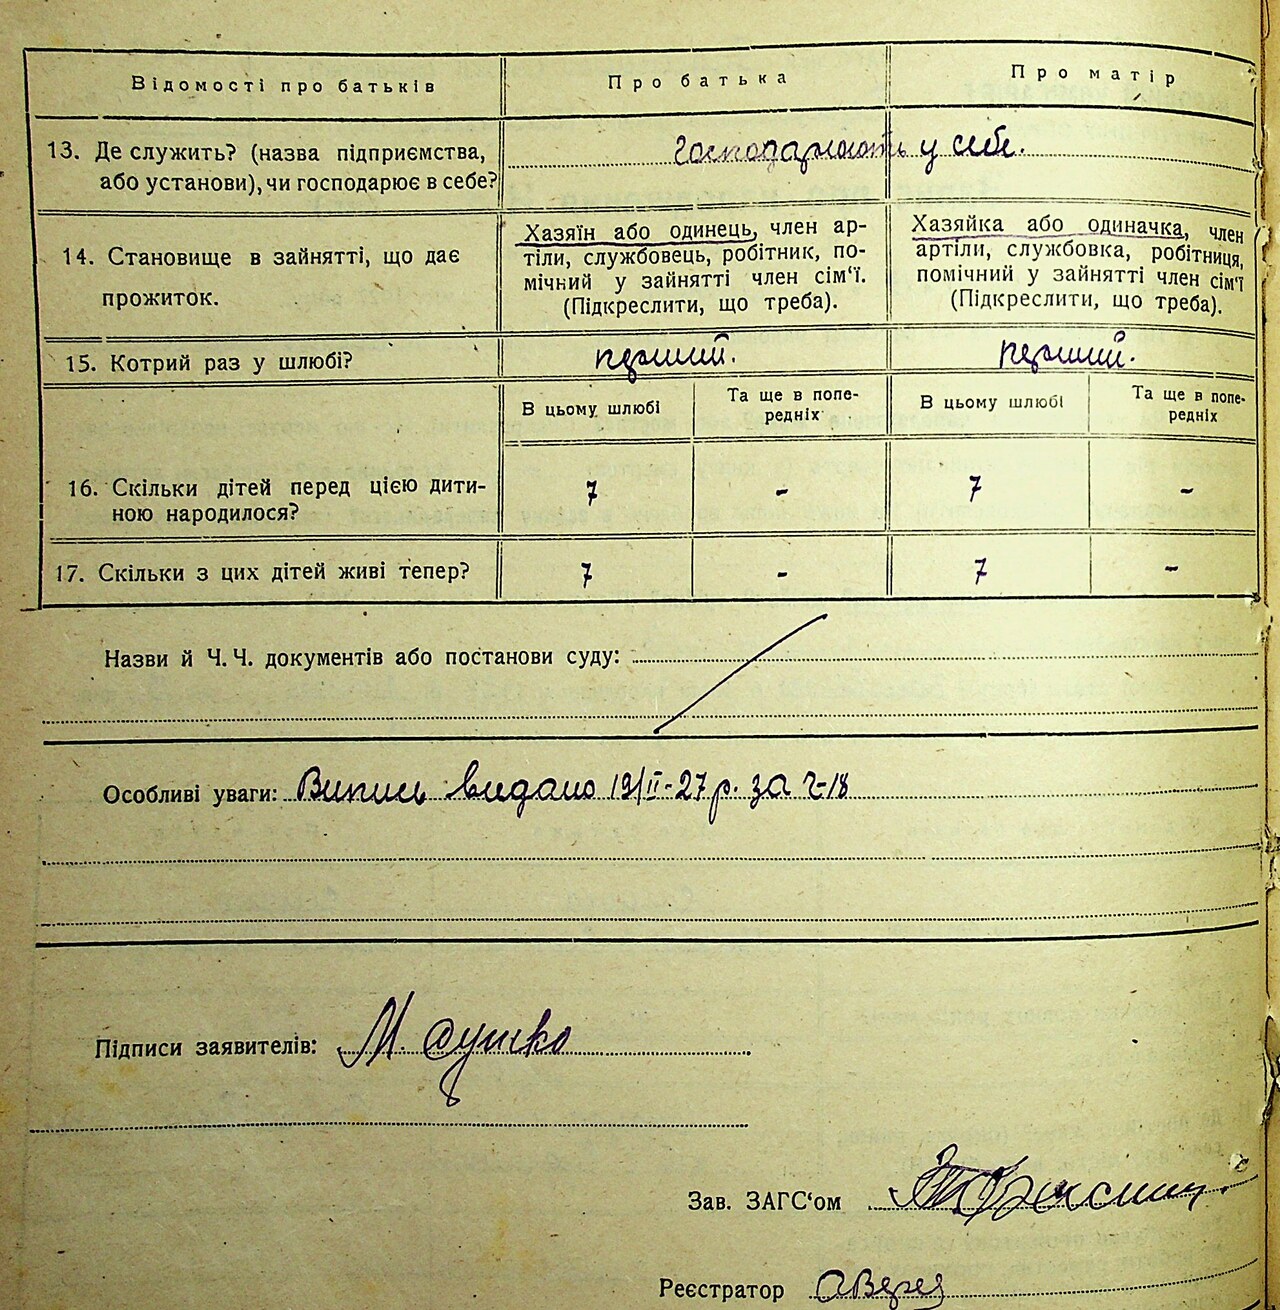 Відомості про батьків Про батька Про матір
13. Де служить? (назва підприємства, або установи), чи господарює в себе? Господарюють у себе.
14. Становище в зайнятті, що дає прожиток.
Хазяїн або одинець, член ар-
тіли, службовець, робітник, по-
мічний у зайнятті член сім'ї.
(Підкреслити, що треба).
Хазяйка або одиначка, член
артіли, службовка, робітниця,
помічний у зайнятті член сім'ї
(Підкреслити, що треба).
15. Котрий раз у шлюбі? перший. перший.
В цьому шлюбі Та ще в попе-редніх В цьому шлюбі Та ще в попе-редніх
16. Скільки дітей перед цією дити-
ною народилося? 7 - 7 -
17. Скільки з цих дітей живі тепер? 7 - 7 -
Назви й Ч. Ч. документів або постанови суду:
Особливі уваги: Випись видано 19/II-27 р. за ч-18
Підписи заявителів: М.
Зав. ЗАГС'ом
Реєстратор